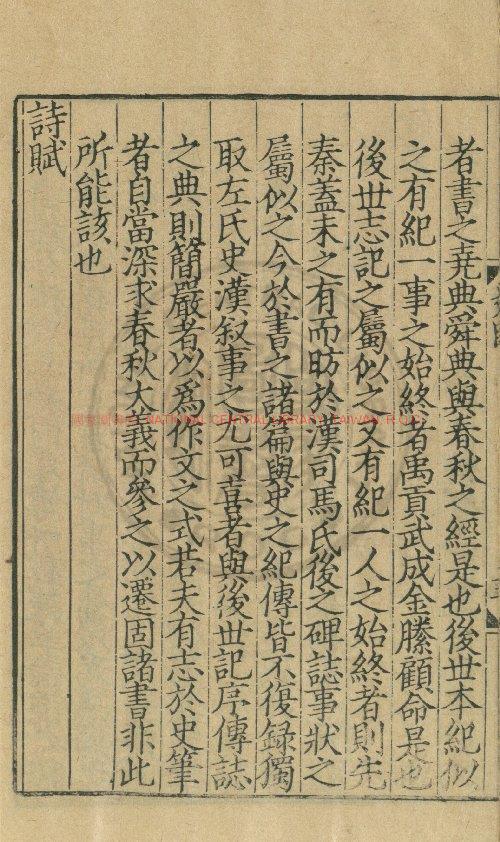 者書之堯典舜典與春秋之經是也後世本紀似
之有紀一事之始終者禹貢武成金縢顧命是也
後世志記之屬似之又有紀一人之始終者則先
秦蓋未之有而昉於漢司馬氏後之碑誌事狀之
屬似之今於書之諸篇與史之紀傳皆不復錄獨
取左氏史漢敘事之尤可喜者與後世記序傳誌
之典則簡嚴者以爲作文之式若夫有志於史筆
者自當深求春秋大義而參之以遷固諸書非此
所能該也
詩賦
NATIONAL CENTRAL LIBRARY, TAIWAN, R.O.C